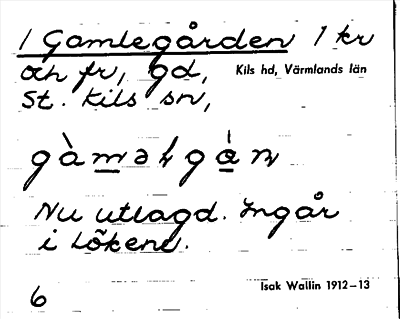 1 Gamlegården 1 kr
och fr, gd,
Kils hd, Värmlands län
St. Kils sn,
Nu utlagd. Ingår
i Löken.
Isak Wallin 1912–13
6